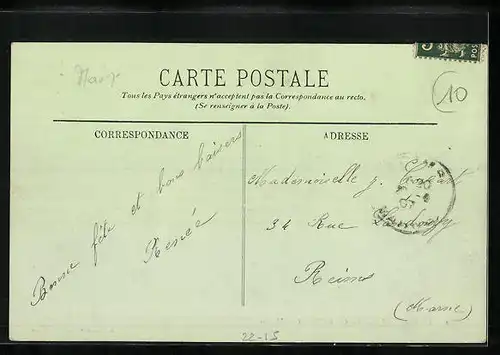 CARTE POSTALE
Tous les Pays étrangers n'acceptent pas la Correspondance au recto.
(Se renseigner à la Poste).
10
CORRESPONDANCE
ADRESSE
Bonne fête et bons baisers
Renée
Mademoiselle J.
34 Rue
Reims
(Marne)
22-15